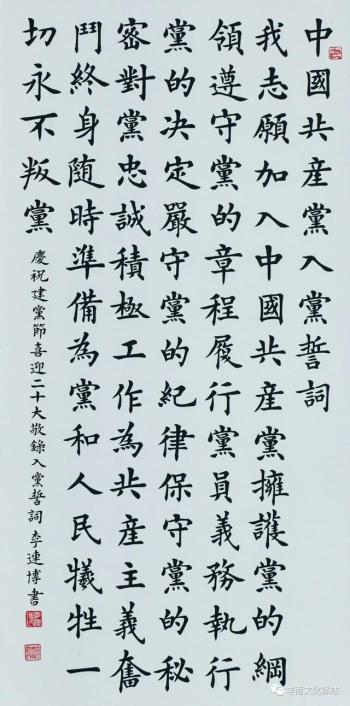 中國共産黨入黨誓詞
我志願加入中國共産黨擁護黨的綱
領遵守黨的章程履行黨員義務執行
黨的决定嚴守黨的紀律保守黨的秘
密對黨忠誠積極工作為共産主義奮
鬥終身随時準備為黨和人民犧牲一
切永不叛黨
慶祝建黨節喜迎二十大敬錄入黨誓詞 李連博書
丰南文化驿站